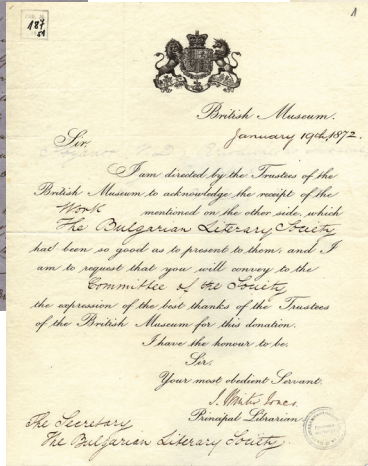 187
1
British Museum.
January 19th, 1872.
Sir,
I am directed by the Trustees of the
British Museum to acknowledge the receipt of the
Work mentioned on the other side, which
The Bulgarian Literary Society
had been so good as to present to them; and I
am to request that you will convey to the
Committee of the Society
the expression of the best thanks of the Trustees
of the British Museum for this donation.
I have the honour to be,
Sir,
Your most obedient Servant,
J. Winter Jones
Principal Librarian
The Secretary
The Bulgarian Literary Society.